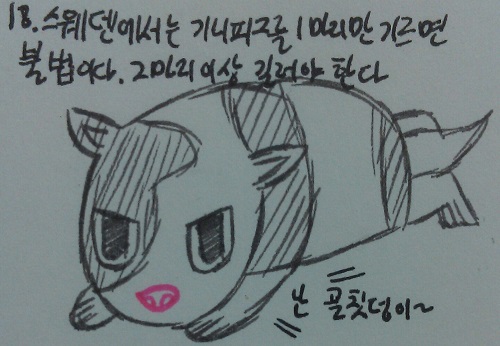 18. 스웨덴에서는 기니피그를 1마리만 기르면
불법이다. 2마리 이상 길러야 한다
난 골칫덩이~